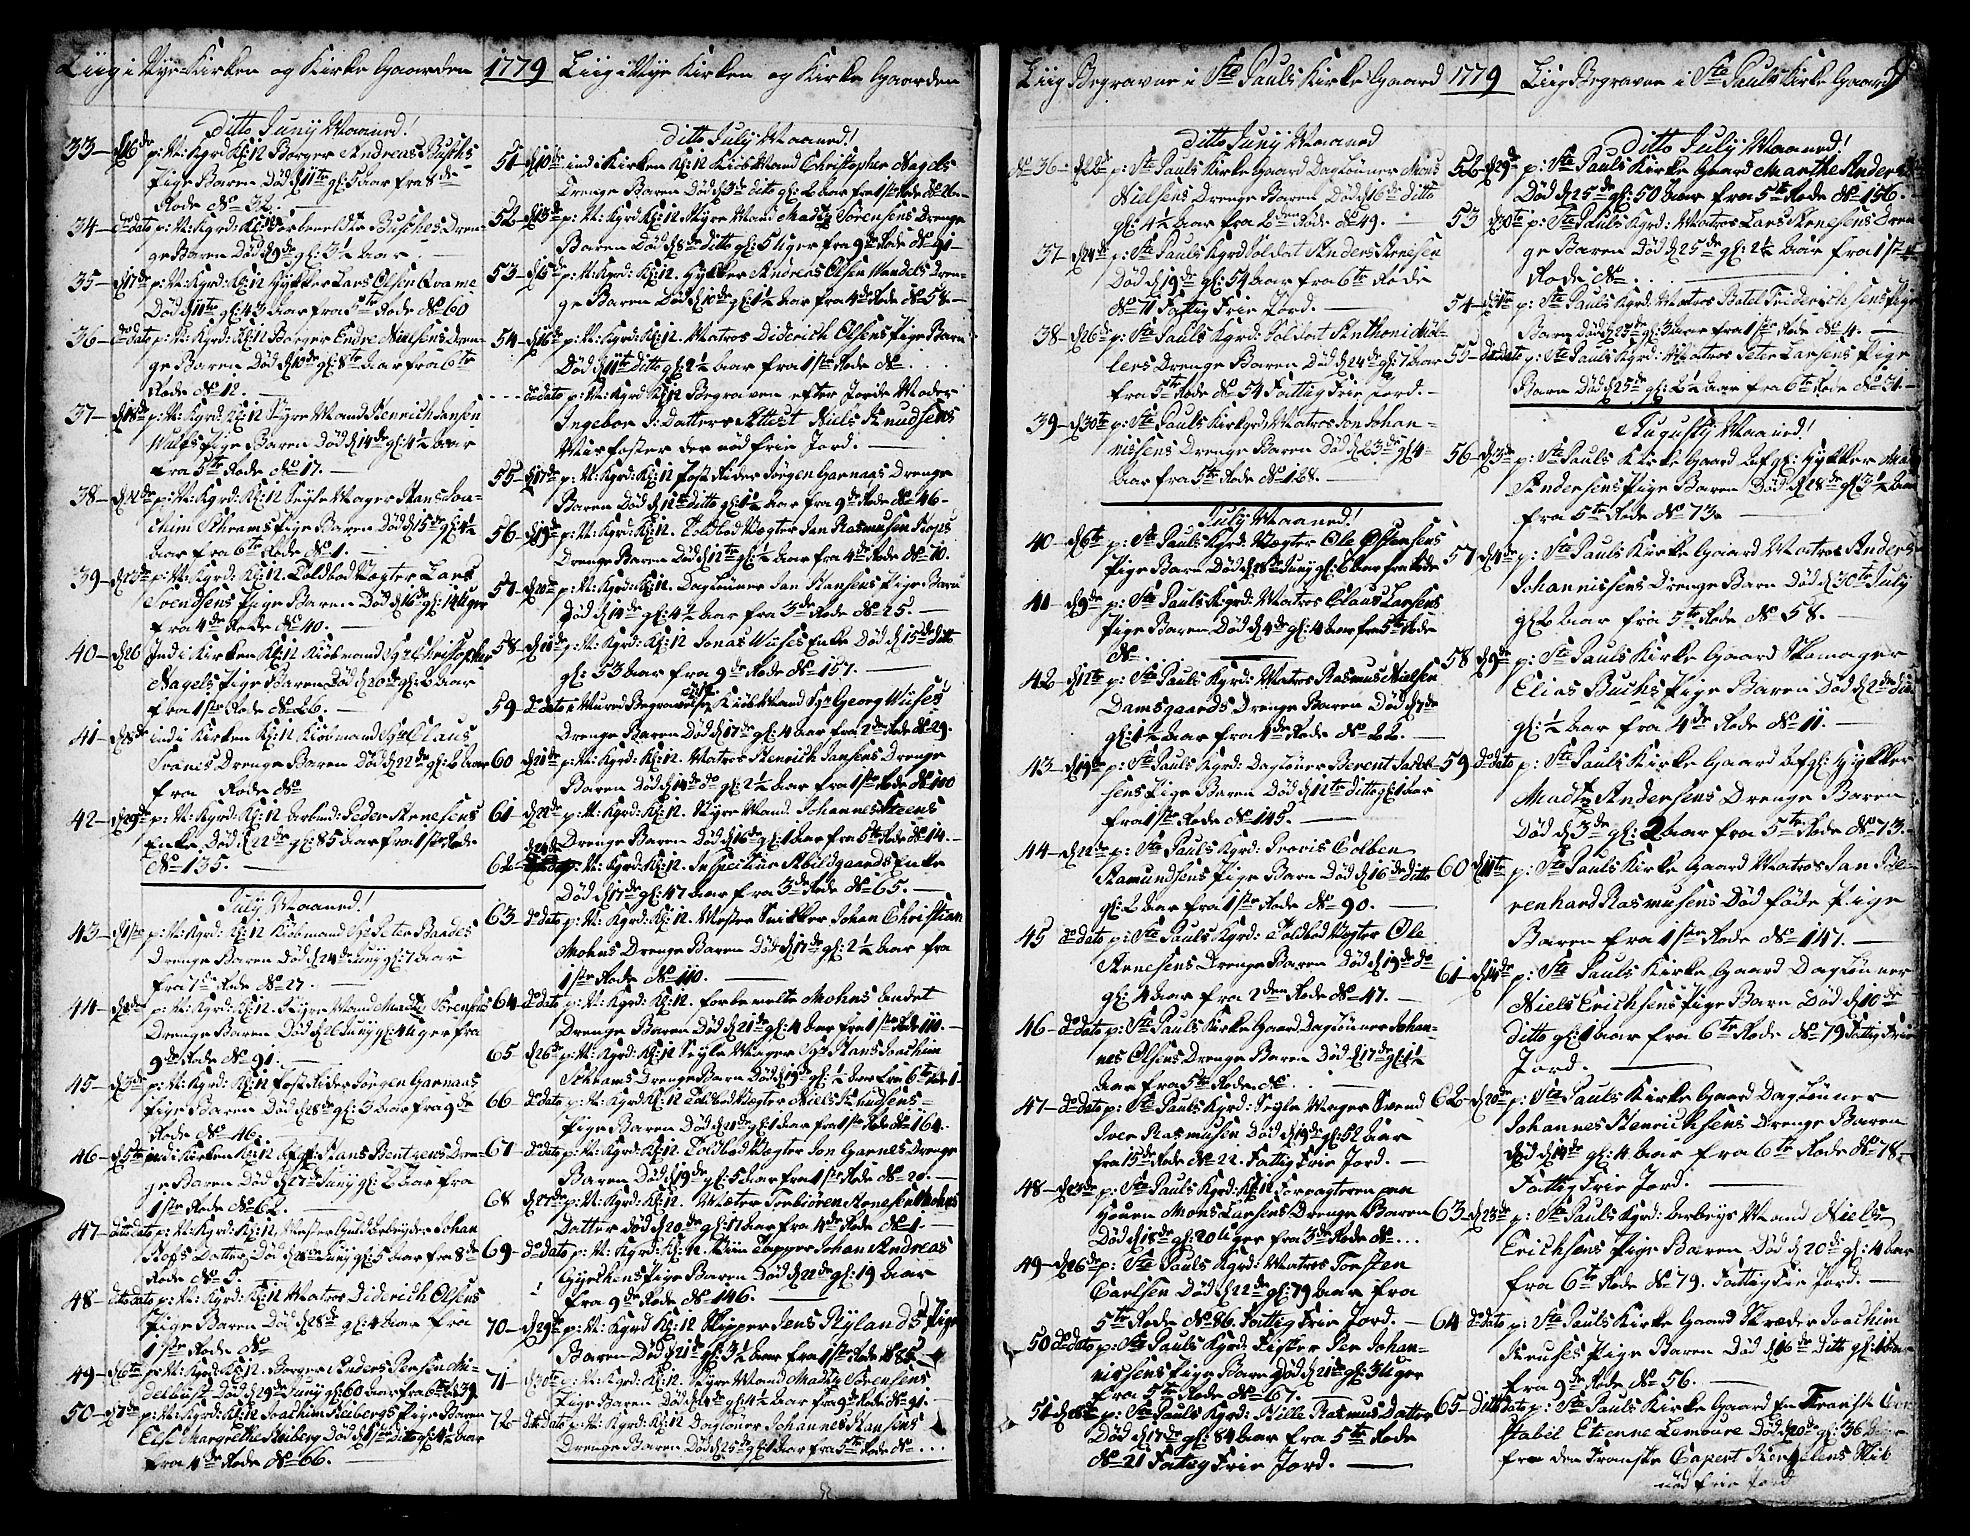 Liig i Nye Kirken og Kirke Gaarden
1779
Ditto Juny Maaned!
33 – d 16de p: N: Kgrd Kl: 12 Borger Andreas Buschs
Pige Baren Død d 11te gl: 5 aar fra 8de
Rode No 32.
34 – do dato p: N: Kgrd: Kl: 12 forbemeldte Busches Dren-
ge Baren Død d 9de gl: 3½ aar
35 – d 17de p: N: Kgrd: Kl: 12 Lars Olsen
Død d 11te gl: 43 aar fra 5te Rode No 60
36 – do dato p: N: Kgrd: Kl: 12 Borger Endre Nielsens Dren-
ge Baren Død d gl: 8te aar fra 6te
Rode No 12.
37 – d 18de p: N: Kgrd: Kl: 12 Styre Mand Henrich Jansen
Wulfs Pige Baren Død d 14de gl: 4½ aar
fra 5te Rode No 17.
38 – p: N: Kgrd: Kl: 12 Seyle Mager Hans Joa-
chim Schrams Pige Baren Død d 15de gl: 4½
aar fra 6te Rode No 1.
39 – p: N: Kgrd: Kl: 12 Toldbod Vægter Lars
Svendsens Pige Baren Død d 16de gl: 14 Uger
fra 4de Rode No 40.
40 – d 26 Ind i Kirken Kl: 12 Kiøbmand Sgr Christopher
Nagels Pige Baren Død d 20de gl: 2 aar
fra 1ste Rode No 26.
41 – d 28de ind i Kirken Kl: 12 Kiøbmand Sgr Claus
Drenge Baren Død d 22de gl: 2 aar
fra Rode No
42 – d 29de p: N: Kgrd: Kl: 12 Arbmd: Peder Arnesens
Enke Død d 22de gl: 85 aar fra 1ste Rode
No 135.
July Maaned!
43 – d 1ste p: N: Kgrd: Kl: 12 Kiøbmand Sgr Peter
Drenge Baren Død d 24de Juny gl: 7 aar
fra 7de Rode No 27.
44 – d 2de p: N: Kgrd: Kl: 12 Styre Mand Madtz Sørensens
Drenge Baren Død Juny gl: 4 Uger fra
9de Rode No 91.
45 – d 3de p: N: Kgrd: Kl: 12 Post Rider Jørgen Garnaas
Pige Baren Død d 28de gl: 3 aar fra 9de
Rode No 46.
46 – d 5te ind i Kirken Kl: 12 Hans Bentzens Dren-
ge Baren Død d 27de Juny gl: 2 aar fra
1ste Rode No 62.
47 – do dato p: N: Kgrd: Kl: 12 Mester Guld Arbeyder Johan
Datter Død Juny gl: 5 aar fra 8de
Rode No 5.
48 – ditto dato p: N: Kgrd: Kl: 12 Matros Diderich Olsens
Pige Baren Død d 28de gl: 4 aar fra
1ste Rode No
49 – d 6te p: N: Kgrd: Kl: 12 Borger Anders
Død d 29de Juny gl: 60 aar fra 6te No 39
50 – d 7de p: N: Kgrd: Kl: 12 Joachim Pige Baren
Else Margrethe Død d 1ste ditto gl: 4½ aar
fra 4de Rode No 66.
Liig i Nye Kirken og Kirke Gaarden
Ditto July Maaned!
51 – d 10de ind i Kirken Kl: 12 Kiøb Mand Christopher Nagels
Drenge Baren Død d 3de dito gl: 2 aar fra 1ste Rode No 26
52 – d 13de p: N: Kgrd Kl: 12. Styre Mand Madtz Sørensens Drenge
Baren Død d 8de ditto gl: 5 Uger fra 9de Rode No 91
53 – d 15de p: N: Kgrd: Kl: 12. Andreas Olsen Wendels Dren-
ge Baren Død d 10de gl: 1½ aar fra 4de Rode No 58
54 – d 16de p: N: Kgrd: Kl: 12. Matros Diderich Olsens Pige Barn
Død d 11te Ditto gl: 2½ aar fra 1ste Rode No
do dato p: N: Kgrd Kl: 12 Begraven efter Jorde Moder
Ingebor J: Datters Attest Niels Knudsens
Misfoster der nød frie Jord.
55 – d 17de p: N: Kgrd: Kl: 12 Post Rider Jørgen Garnaas Drenge
Baren Død d 12te Ditto gl: 1½ aar fra 9de Rode No 46
56 – d 19de p: N: Kgrd: Kl: 12. Toldbod Vægter Jan Rasmusen
Drenge Baren Død d 12te gl: ½ aar fra 4de Rode No 10.
57 – d 20de p: N: Kgrd: Kl: 12. Dagløner Jan Hansens Pige Barn
Død d 14de gl: 4½ aar fra 3de Rode No 25.
58 – p: N: Kgrd: Kl: 12 Jonas Wiises Enke Død d 15de ditto
gl: 53 aar fra 9de Rode No 157.
59 – do dato i Mured Begravelse Kiøb Mand Sgr Georg Wiises
Drenge Baren Død d 17de gl: 4 aar fra 2de Rode No 29.
60 d 21de p: N: Kgrd: Kl: 12. Matros Henrich Jansens Drenge
Baren Død d 14de do gl: 2½ aar fra 1ste Rode No 100
61 – d 22de p: N: Kgrd: Kl: 12. Styre Mand Johannes Steens
Drenge Baren Død d 16de gl: 1 aar fra 5te Rode No 14.
62 – p: N: Kgrd: Kl: 12. Inspecteur Abildgaards Enke
Død d 17de gl: 47 aar fra 3de Rode No 65.
63 – do dato p: N: Kgrd: Kl: 12. Mester Snikker Johan Christian
Mohns Drenge Baren Død d 17de gl: 2½ aar fra
1ste Rode No 110.
64 – do dato p: N: Kgrd: Kl: 12. forbemelte Mohns andet
Drenge Baren Død d 21de gl: 4 aar fra 1ste Rode 110.
65 d 26de p: N: Kgrd: Kl: 12 Seyle Mager Sgr Hans Joachim
Schrams Drenge Baren Død d 19de gl: ½ aar fra 6te Rode 1
66 – do dato p: N: Kgrd Kl: 12 Toldbod Vægter Niels Knudsens
Pige Baren Død d 21de gl: 1 aar fra 1ste Rode No 164.
67 – do dato p: N: Kgrd: Kl: 12. Toldbod Vægter Jon Garnes Drenge
Baren Død d 19de gl: 5 aar fra 1ste Rode No 20.
68 d 27de p: N: Kgrd: Kl: 12. Torbiøren
Datter Død d 20de gl: 17 aar fra 4de Rode No 1
69 – do dato p: N: Kgrd: Kl: 12. Viin Tapper Johan Andreas
Pige Baren Død d 22de gl: 19 aar
fra 9de Rode No 146.
70 – d 29de p: N: Kgrd Kl: 12 Skipper Jens Rylands Pige
Baren Død d 21de gl: 3½ aar fra 1ste Rode No 85
71 – d 30te p: N: Kgrd: Kl: 12. Styre Mand Madtz Sørensens
Pige Baren Død gl: 4½ aar fra 9de Rode No 91.
72 – do dato p: N: Kgrd: Kl: 12 Dagløner Johannes Hansens
Drenge Baren Død d 25de gl: 1 aar fra 5te Rode No
Liig Begravne i Ste Pauls Kirke Gaard
1779
Ditto Juny Maaned
No 36 – d 22de p: Ste Pauls Kirke Gaard Dagløner Mons
Nielsens Drenge Baren Død d 16de Ditto
gl: 4½ aar fra 2den Rode No 49.
37 – d 24de p: Ste Pauls Kgrd Soldat Anders Arnesen
Død d 19de gl: 54 aar fra 6te Rode
No 71 Fattig Frie Jord.
38 – d 26de p: Ste Pauls Kgrd: Soldat Anthoni Møl-
lers Drenge Baren Død d 24de gl: 7 aar
fra 5te Rode No 54 Fattig Frie Jord.
39 – d 30te p: Ste Pauls Kirkegrd Matros Jon Johan-
nissens Drenge Baren Død d 23de gl: 4
aar fra 5te Rode No 128.
July Maaned!
40 – d 6te p: Ste Pauls Kgrd: Vægter Ole Olsensens
Pige Barn Død d 28de Juny gl: 2 aar fra Rode
41 – d 9de p: Ste Pauls Kgrd: Matros Claus Larsens
Pige Baren Død d 4de gl: 4 aar fra 5te Rode
No
42 – d 12te p: Ste Pauls Kgrd: Matros Rasmus Nielsen
Damsgaards Drenge Baren Død d 7de
gl: 1½ aar fra 1de Rode No 22.
43 – d 19de p: Ste Pauls Kgrd: Dagløner Berent Jacob-
sens Pige Baren Død d 12te ditto gl: 1 aar
fra 1ste Rode No 145.
44 – d 22de p: Ste Pauls Kgrd: Provis Colben
Aamundsens Pige Baren Død d 16de Ditto
gl: 2 aar fra 1ste Rode No 90.
45 do dato p: Ste Pauls Kgrd: Toldbod Vægter Ole
Arnesens Drenge Baren Død d 19de do
gl: 4 aar fra 2den Rode No 47.
46 – do dato p: Ste Pauls Kirke Gaard Dagløner Johan-
nes Olsens Drenge Baren Død d 17de gl: 1½
aar fra 5te Rode No
47 – do dato p: Ste Pauls Kgrd: Seyle Mager Svend
Iver Rasmusen Død d 19de gl: 52 aar
fra 15de Rode No 22. Fattig Frie Jord.
48 – d 23de p: Ste Pauls Kgrd: Kl: 12 Forvagteren paa
Mons Larsens Drenge Baren
Død d 18de gl: 20 Uger fra 3de Rode No
49 – d 26de p: Ste Pauls Kgrd: Matros Torsten
Carlsen Død d 22de gl: 79 aar fra
5te Rode No 86. Fattig Frie Jord.
50 do dato p: Ste Pauls Kgrd: Fisker Per Johan-
nissens Pige Barn Død d 21de gl: 3 Uger
fra 5te Rode No 67.
51 – d 28de p: Ste Pauls Kgrd: Hille Rasmus Datter
Død d 17de gl: 84 aar fra 5te Rode
No 21 Fattig Frie Jord.
Liig Begravne i Ste Pauls Kirke Gaard
9
Ditto July Maaned!
52 – d 29de p: Ste Pauls Kirke Gaard Marthe Anders
Død d 25de gl: 50 aar fra 5te Rode No 156.
53 d 30te p: Ste Pauls Kgrd: Matros Lars Arnesens Dren-
ge Baren Død d 25de gl: 2½ aar fra 1ste
Rode No
54 – p: Ste Pauls Kgrd: Matros Batel Friderichsens Pige
Baren Død d 25de gl: 3 aar fra 1ste Rode No 4.
55 – do dato p: Ste Pauls Kgrd: Matros Peter Larsens Pige
Baren Død d 25de gl: 2½ aar fra 6te Rode No 31.
Augusty Maaned!
56 – d 3de p: Ste Pauls Kirke Gaard
Andersens Pige Baren Død d 28de gl: 3½ aar
fra 5te Rode No 73
57 – d 4de p: Ste Pauls Kirke Gaard Matros Anders
Johannissens Drenge Barn Død d 30te July
gl: 2 aar fra 5te Rode No 58.
58 d 9de p: Ste Pauls Kirke Gaard Skomager
Elias Buchs Pige Baren Død d 2de ditto
gl: ½ aar fra 4de Rode No 11.
59 – do dato p: Ste Pauls Kirke Gaard
Madtz Andersens Drenge Baren
Død d 3de gl: 2 aar fra 5te Rode No 73.
60 d 11te p: Ste Pauls Kirke Gaard Matros Jan Be-
renhard Rasmusens Død føde Pige
Baren fra 1ste Rode No 147.
61 – d 14de p: Ste Pauls Kirke Gaard Dagløner
Niels Erichsens Pige Barn Død d 10de
ditto gl: 1 aar fra 6te Rode No 79 Fattig Frie
Jord.
62 – d 20de p: Ste Pauls Kirke Gaard Dagløner
Johannes Henrichsens Drenge Baren
Død d 14de gl: 4 aar fra 6te Rode No 78
Fattig Frie Jord.
63 – d 23de p: Ste Pauls Kgrd: Arbeys Mand Niels
Erichsens Pige Baren Død d 20de gl: 4 aar
fra 6te Rode No 79. Fattig Frie Jord.
64 do dato p: Ste Pauls Kirke Gaard Skræder Joachim
Pige Baren Død d 16de Ditto gl: 1 aar
fra 9de Rode No 56.
65 – Ditto dato p: Ste Pauls Kirke Gaard En Fransk Con-
stabel Etienne Lemoure Død d 20de gl: 36 aar
fra den Franske Capert Skib
nød frie Jord